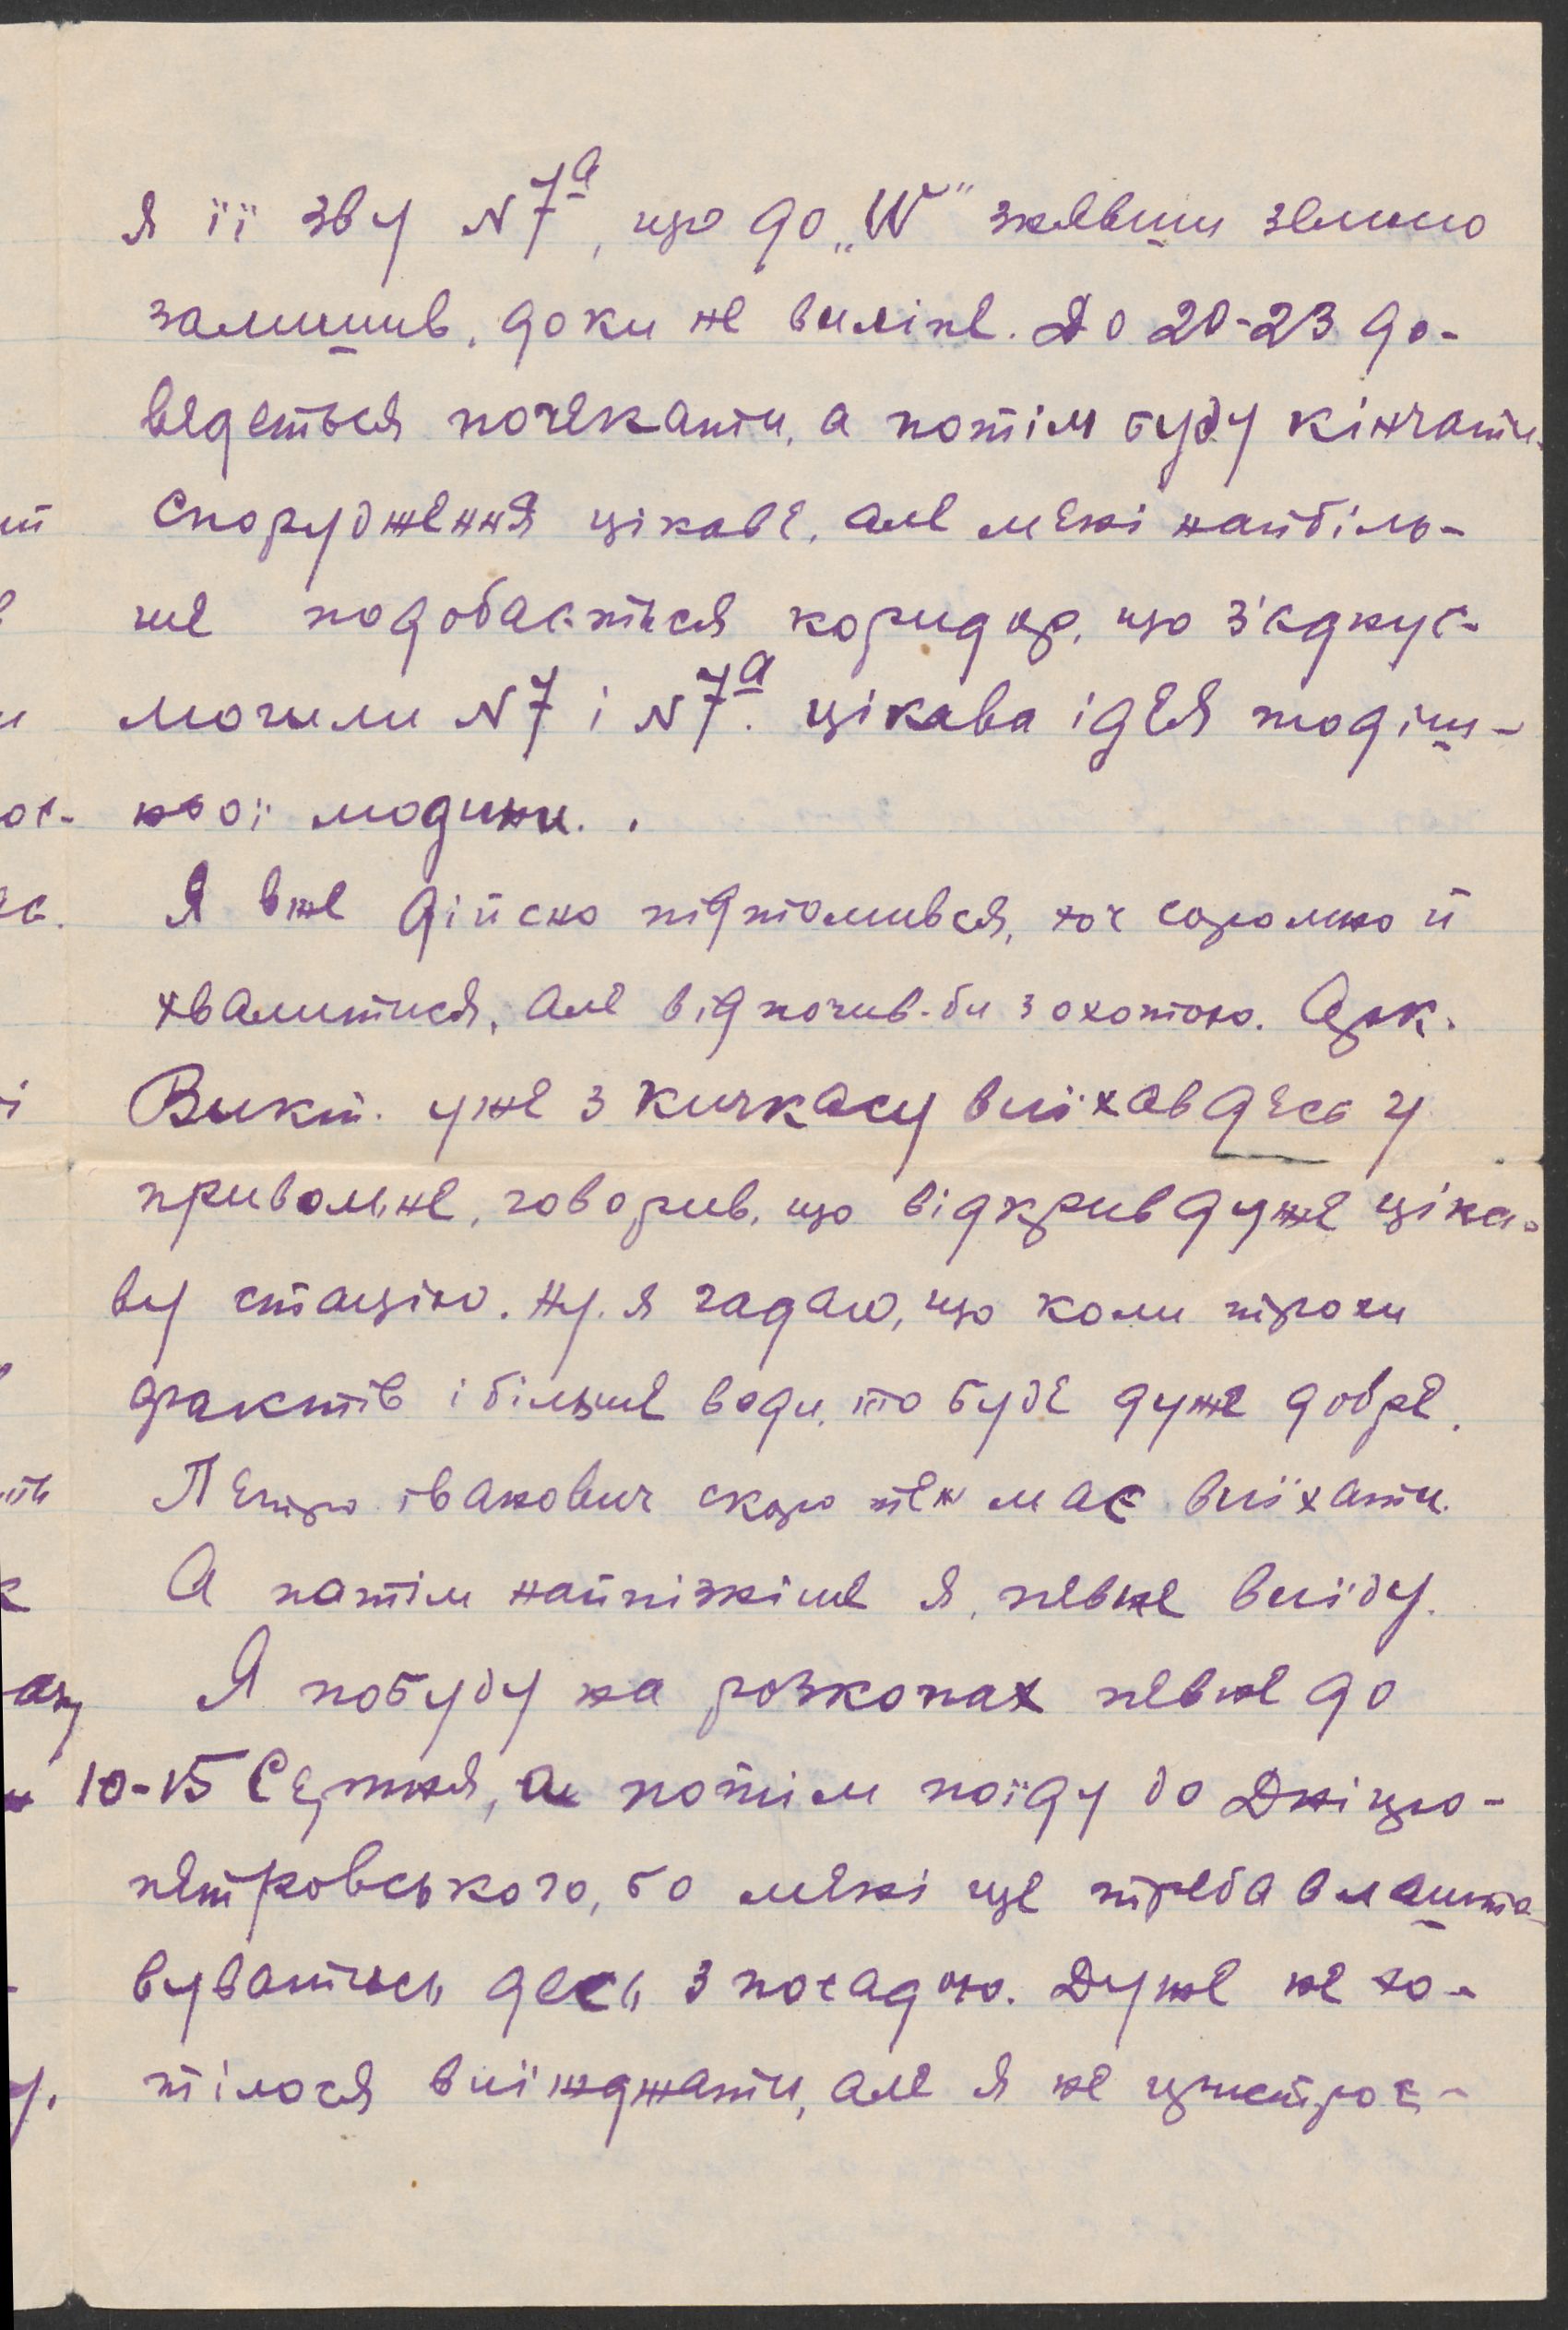 Я її зву N 7а, що до „W" знявши землю
залишив, доки не вилізе. До 20-23 до-
ведеться почекати, а потім буду кінчати.
Спорудження цікаве, але мені найбіль-
ше подобається коридор, що з'єднує
могили N 7 і N 7а. Цікава ідея тодіш-
ньої людини. .
Я вже дійсно підтомився, хоч соромно й
хвалитися, але відпочив-би з охотою. Арк.
Викт. уже з Кичкасу виїхав десь у
привольне, говорив, що відкрив дуже ціка-
ву стацію. Ну. я гадаю, що коли трохи
фактів і більше води, то буде дуже добре.
Петро Іванович скоро теж має виїхати.
А потім найпізніше я, певне виїду.
Я побуду на розкопах певне до
10-15 Серпня, а потім поїду до Дніпро-
петровського, бо мені ще треба влашто-
вуватись десь з посадою. Дуже не хо-
тілося виїжджати, але я не пристрос-